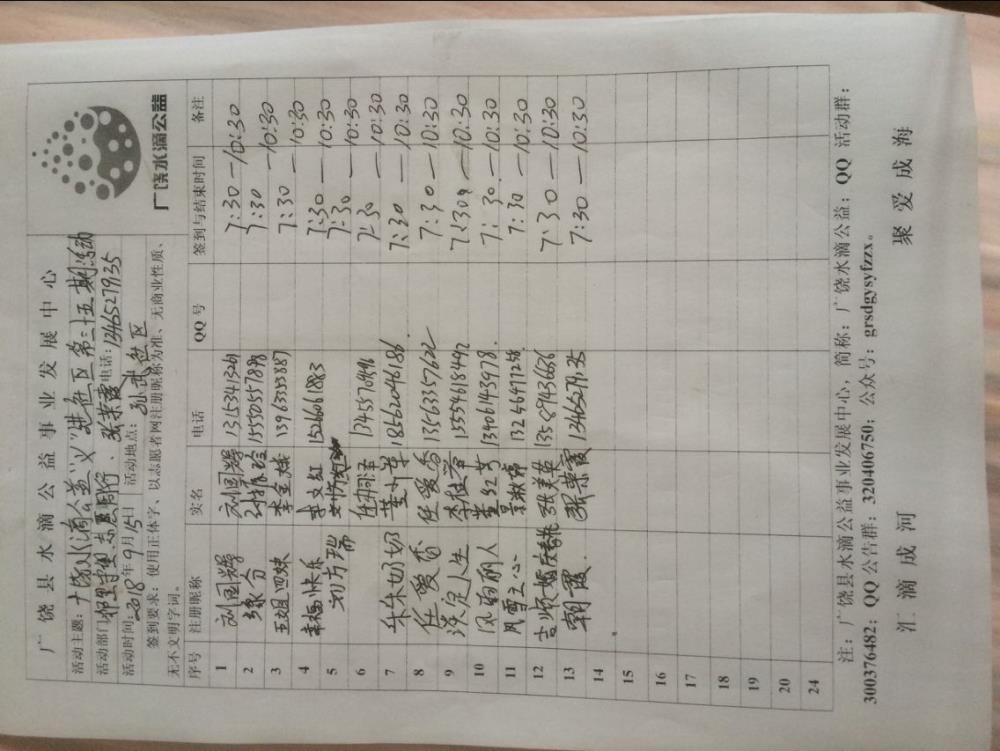 广饶县水滴公益事业发展中心
广饶水滴公益
活动主题：广饶水滴公益"义"进色区第三十五期活动
活动部门：邻里守望.志愿同行、张荣霞电话：13465279135
活动时间：2018年9月15日 活动地点：孙武色区
签到要求：使用正体字、以志愿者网注册昵称为准、无商业性质、
无不文明字词。
序号 注册昵称 实名 电话 QQ号 签到与结束时间 备注
1 刘国辉 刘国辉 13153413261 7:30—10:30
2 缘分 15550557898 7:30—10:30
3 五姐四妹 李金娥 13963353887 7:30—10:30
4 幸福快乐 李文红 15266061883 7:30—10:30
5 刘方瑞 7:30—10:30
6 7:30—10:30
7 牛牛奶奶 董小苹 18562046186 7:30—10:30
8 任爱香 任爱香 13563357622 7:30—10:30
9 淡定人生 李桂蓉 15554618492 7:30—10:30
10 风韵丽人 董红芳 13406143978 7:30—10:30
11 风雪之心 13256477258 7:30—10:30
12 张美英 13589943686 7:30—10:30
13 朝霞 张荣霞 7:30—10:30
14
15
16
17
18
19
20
24
注：广饶县水滴公益事业发展中心，简称：广饶水滴公益；QQ 活动群：
300376482；QQ 公告群：320406750；公众号：grsdgysyfzzx。
汇滴成河 聚爱成海